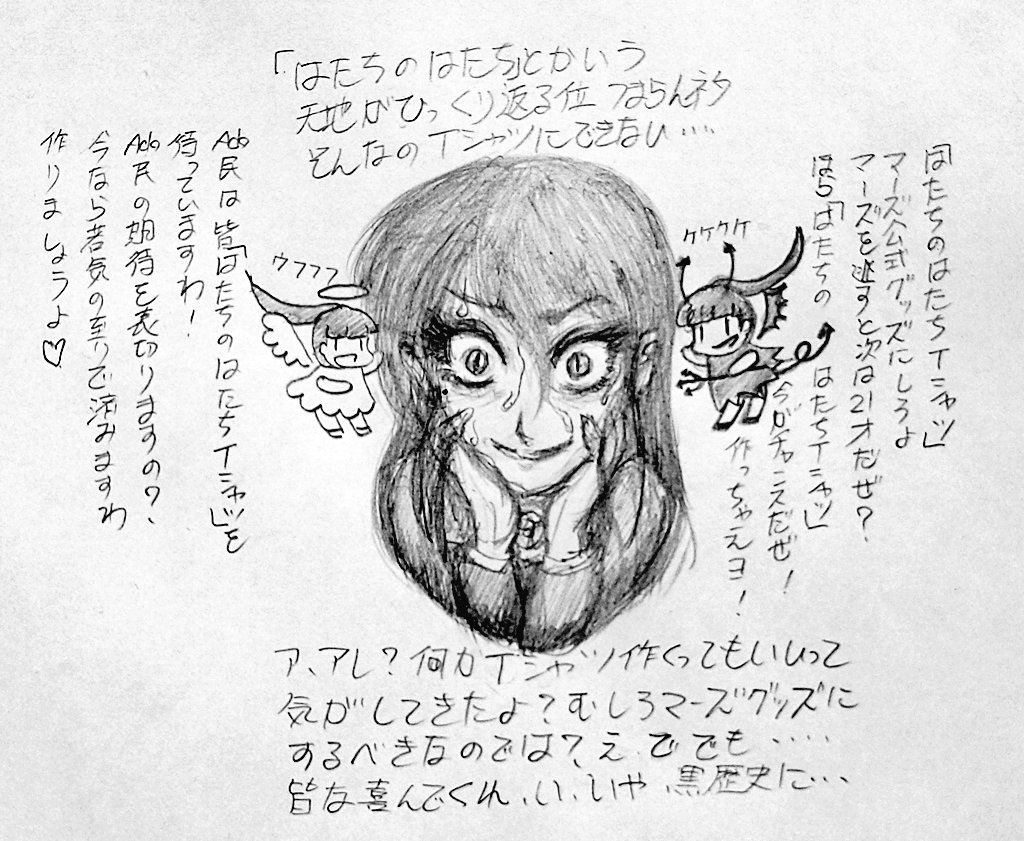 「はたちのはたち」とかいう
天地がひっくり返る位つまらんネタ
そんなのTシャツにできない…
はたちのはたちTシャツ」
マーズ公式グッズにしろよ
マーズを逃すと次は21才だぜ?
ほら「はたちの はたちTシャツ」
今がチャンスだぜ!
作っちゃえヨ!
ケケケケ
ウフフフ
Ado民は皆「はたちのはたちTシャツ」を
待っていますわ!
Ado民の期待を裏切りますの?、
今なら若気の至りで済みますわ
作りましょうよ♡
ア、アレ?何カTシャツ作くってもいいって
気がしてきたよ?むしろマーズグッズに
するべきなのでは?え、ででも・・・・
皆な喜んでくれ、い、いや、黒歴史に・・・